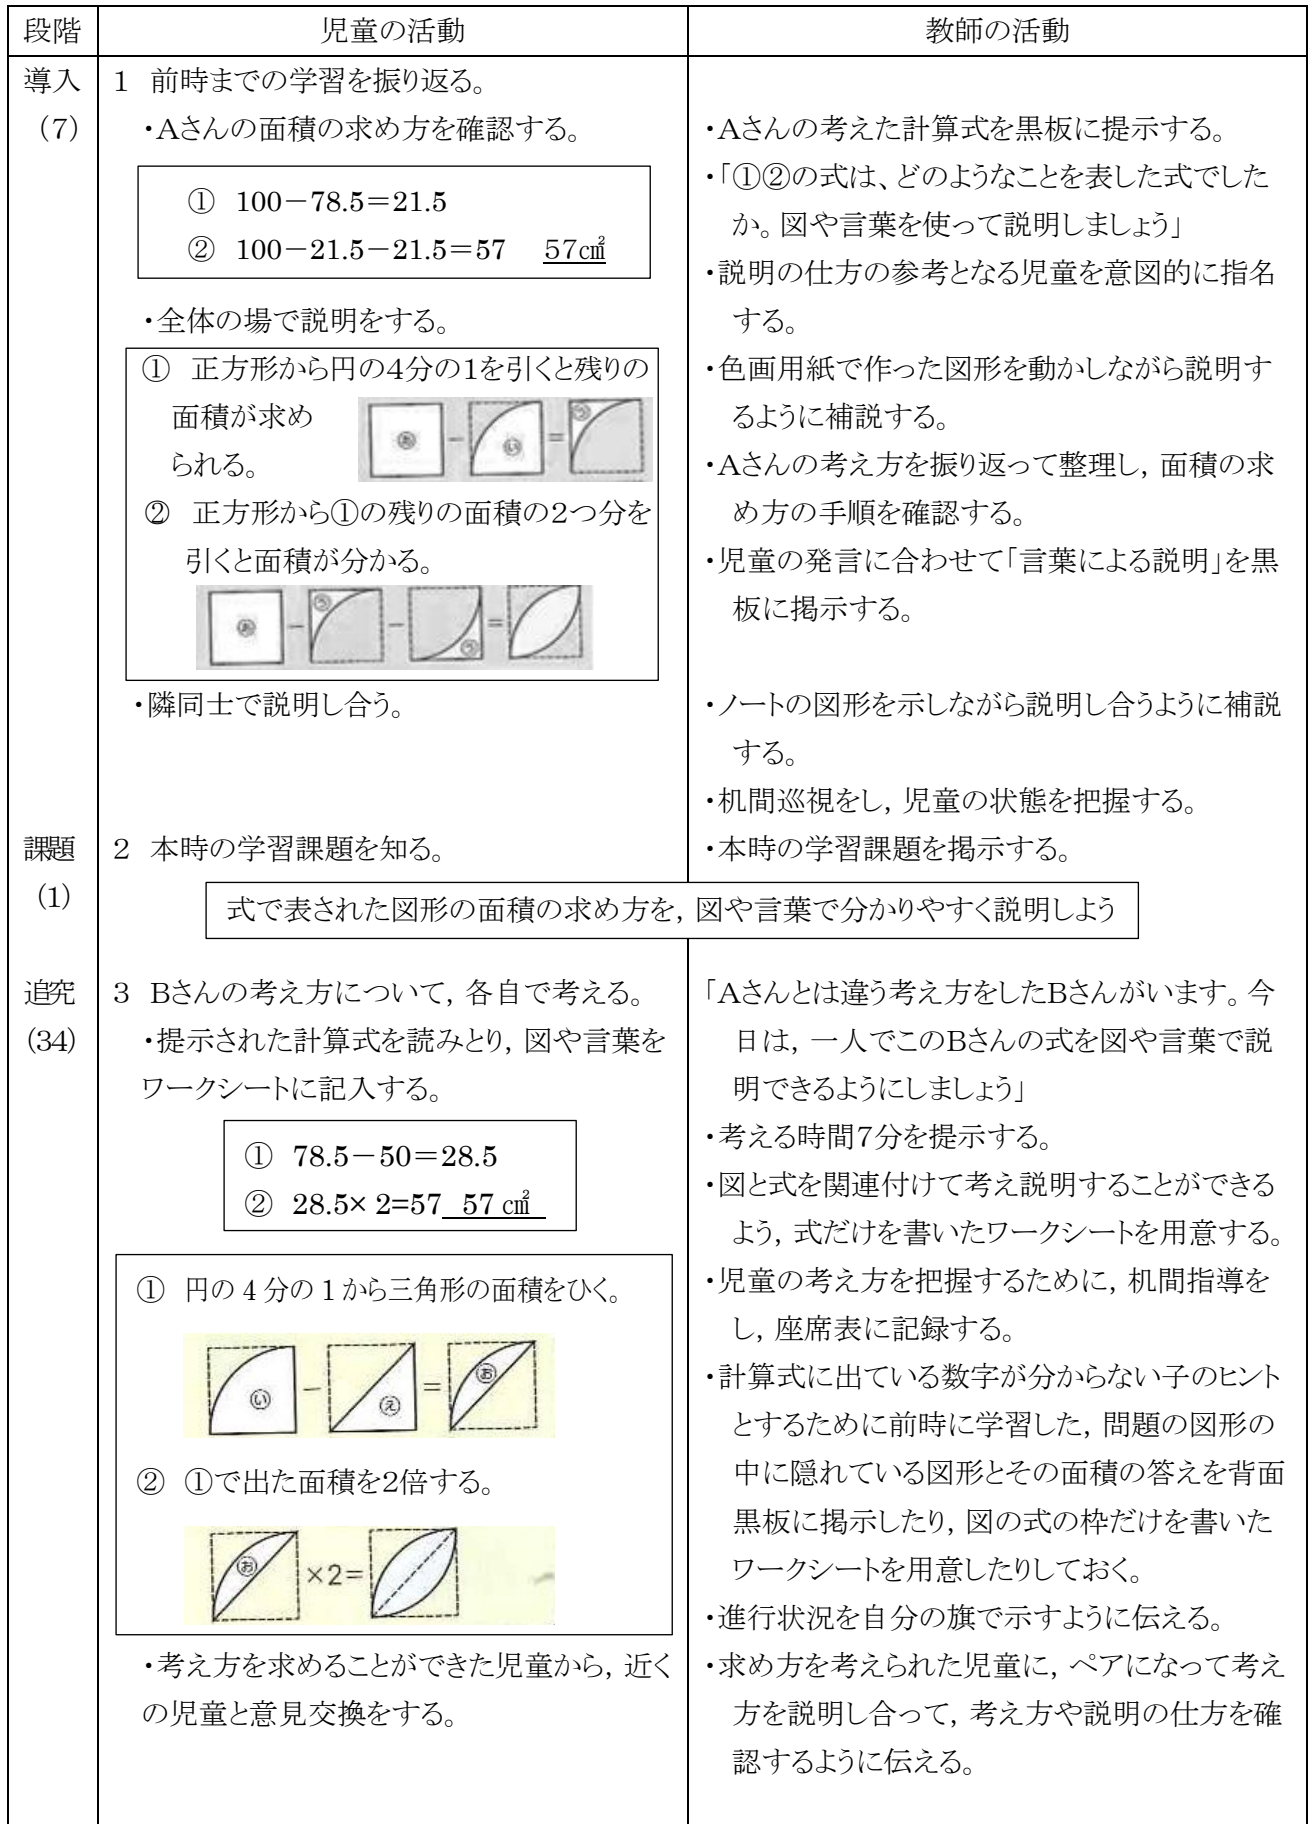 段階
児童の活動
教師の活動
導入
(7)
1 前時までの学習を振り返る。
・Aさんの面積の求め方を確認する。
① 100－78.5＝21.5
② 100－21.5－21.5＝57 57㎠
・全体の場で説明をする。
① 正方形から円の4分の1を引くと残りの
面積が求め
られる。
あ － い ＝ う
② 正方形から①の残りの面積の2つ分を
引くと面積が分かる。
あ － う － う ＝
・隣同士で説明し合う。
・Aさんの考えた計算式を黒板に提示する。
・「①②の式は、どのようなことを表した式でした
か。図や言葉を使って説明しましょう」
・説明の仕方の参考となる児童を意図的に指名
する。
・色画用紙で作った図形を動かしながら説明す
るように補説する。
・Aさんの考え方を振り返って整理し，面積の求
め方の手順を確認する。
・児童の発言に合わせて「言葉による説明」を黒
板に掲示する。
・ノートの図形を示しながら説明し合うように補説
する。
・机間巡視をし，児童の状態を把握する。
課題
(1)
2 本時の学習課題を知る。
・本時の学習課題を掲示する。
式で表された図形の面積の求め方を，図や言葉で分かりやすく説明しよう
追究
(34)
3 Bさんの考え方について，各自で考える。
・提示された計算式を読みとり，図や言葉を
ワークシートに記入する。
① 78.5－50＝28.5
② 28.5×2=57 57㎠
① 円の4分の1から三角形の面積をひく。
い － え ＝ お
② ①で出た面積を2倍する。
お ×2＝
・考え方を求めることができた児童から，近く
の児童と意見交換をする。
「Aさんとは違う考え方をしたBさんがいます。今
日は，一人でこのBさんの式を図や言葉で説
明できるようにしましょう」
・考える時間7分を提示する。
・図と式を関連付けて考え説明することができる
よう，式だけを書いたワークシートを用意する。
・児童の考え方を把握するために，机間指導を
し，座席表に記録する。
・計算式に出ている数字が分からない子のヒント
とするために前時に学習した，問題の図形の
中に隠れている図形とその面積の答えを背面
黒板に掲示したり，図の式の枠だけを書いた
ワークシートを用意したりしておく。
・進行状況を自分の旗で示すように伝える。
・求め方を考えられた児童に，ペアになって考え
方を説明し合って，考え方や説明の仕方を確
認するように伝える。